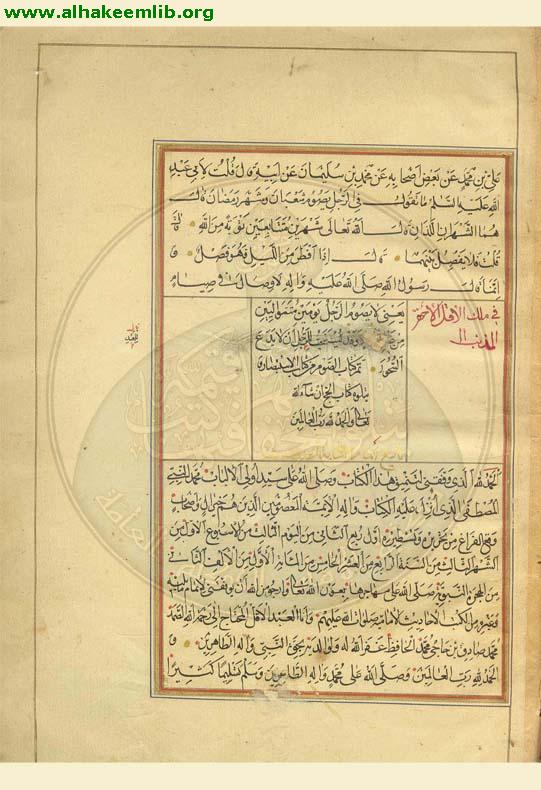 www.alhakeemlib.org
علي بن محمد عن بعض اصحابه عن محمد بن سليمان عن ابيه قال قلت لابي عبد
الله عليه السلم ما تقول في الرجل يصوم شعبان وشهر رمضان قال
هما الشهران اللذان قال الله تعالى شهرين متتابعين توبة من الله قال
قلت فلا يفصل بينهما قال اذا افطر من الليل فهو فصل و
انما قال رسول الله صلى الله عليه واله لا وصال في صيام
يعنى لا يصوم الرجل يومين متواليين
من غير افطار وقد يستحب للعبد ان لا يدع
السحور تم كتاب الصوم من كتاب الاستبصار
يتلوه كتاب الحج ان شاء الله
تعالى والحمد لله رب العالمين
في ملك الاقل الاحقر
المذنب
الحمد لله الذي وفقني لتنميق هذا الكتاب وصلى الله على سيد اولي الالباب محمد النبي
المصطفى الذي انزل عليه الكتاب واله الائمة المعصومين الذين هم خير ال واصحاب
وقع الفراغ من تحريره وتسطيره اول ربع الثاني من اليوم الثالث من الاسبوع الاول من
الشهر الثالث من السنة الرابع من العشر الخامس من المائة الاولى من الالف الثاني
من الهجرة النبوية صلى الله على مهاجرها بعون الله تعالى وارجو من الله ان يوفقني لاتمام ما بقي
من الكتب الاحاديث لأئمة صلوات الله عليهم وانا العبد الاقل المحتاج الى رحمة الله الصمد
محمد صادق بن حاجي محمد الحافظ غفر الله له ولوالديه بحق النبي واله الطاهرين و
الحمد لله رب العالمين وصلى الله على محمد واله الطاهرين وسلم تسليما كثيرا